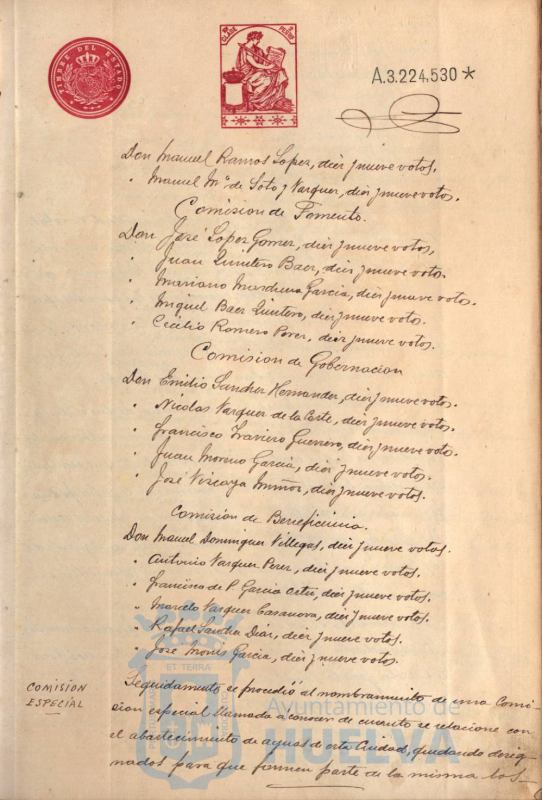 TIMBRE DEL ESTADO
A.3.224.530 *
Don Manuel Ramos Lopez, diez y nueve votos.
" Manuel Mª de Soto y Vazquez, diez y nueve votos.
Comision de Fomento.
Don José Lopez Gomez, diez y nueve votos,
" Juan Quintero Baez, diez y nueve votos.
" Mariano Garcia, diez y nueve votos.
" Miguel Baez Quintero, diez y nueve votos.
" Cecilio Romero Perez, diez y nueve votos.
Comision de Gobernacion
Don Emilio Sanchez Hernandez, diez y nueve votos.
" Nicolas Vazquez de la Corte, diez y nueve votos.
" Francisco Traviero Guerrero, diez y nueve votos.
" Juan Moreno Garcia, diez y nueve votos.
" José Vizcaya Muñoz, diez y nueve votos.
Comision de Beneficencia.
Don Manuel Dominguez Villegas, diez y nueve votos.
" Antonio Vazquez Perez, diez y nueve votos.
" Francisco de P. Garcia Ortiz, diez y nueve votos.
" Marcelo Vazquez Casanova, diez y nueve votos.
" Rafael Sanchez Diaz, diez y nueve votos.
" José Garcia, diez y nueve votos.
COMISION
ESPECIAL
Seguidamente se procedió al nombramiento de una Comi-
sion especial llamada a conocer de cuanto se relacione con
el abastecimiento de aguas de esta Ciudad, quedando desig-
nados para que formen parte de la misma los-
ET TERRA
Ayuntamiento de
HUELVA